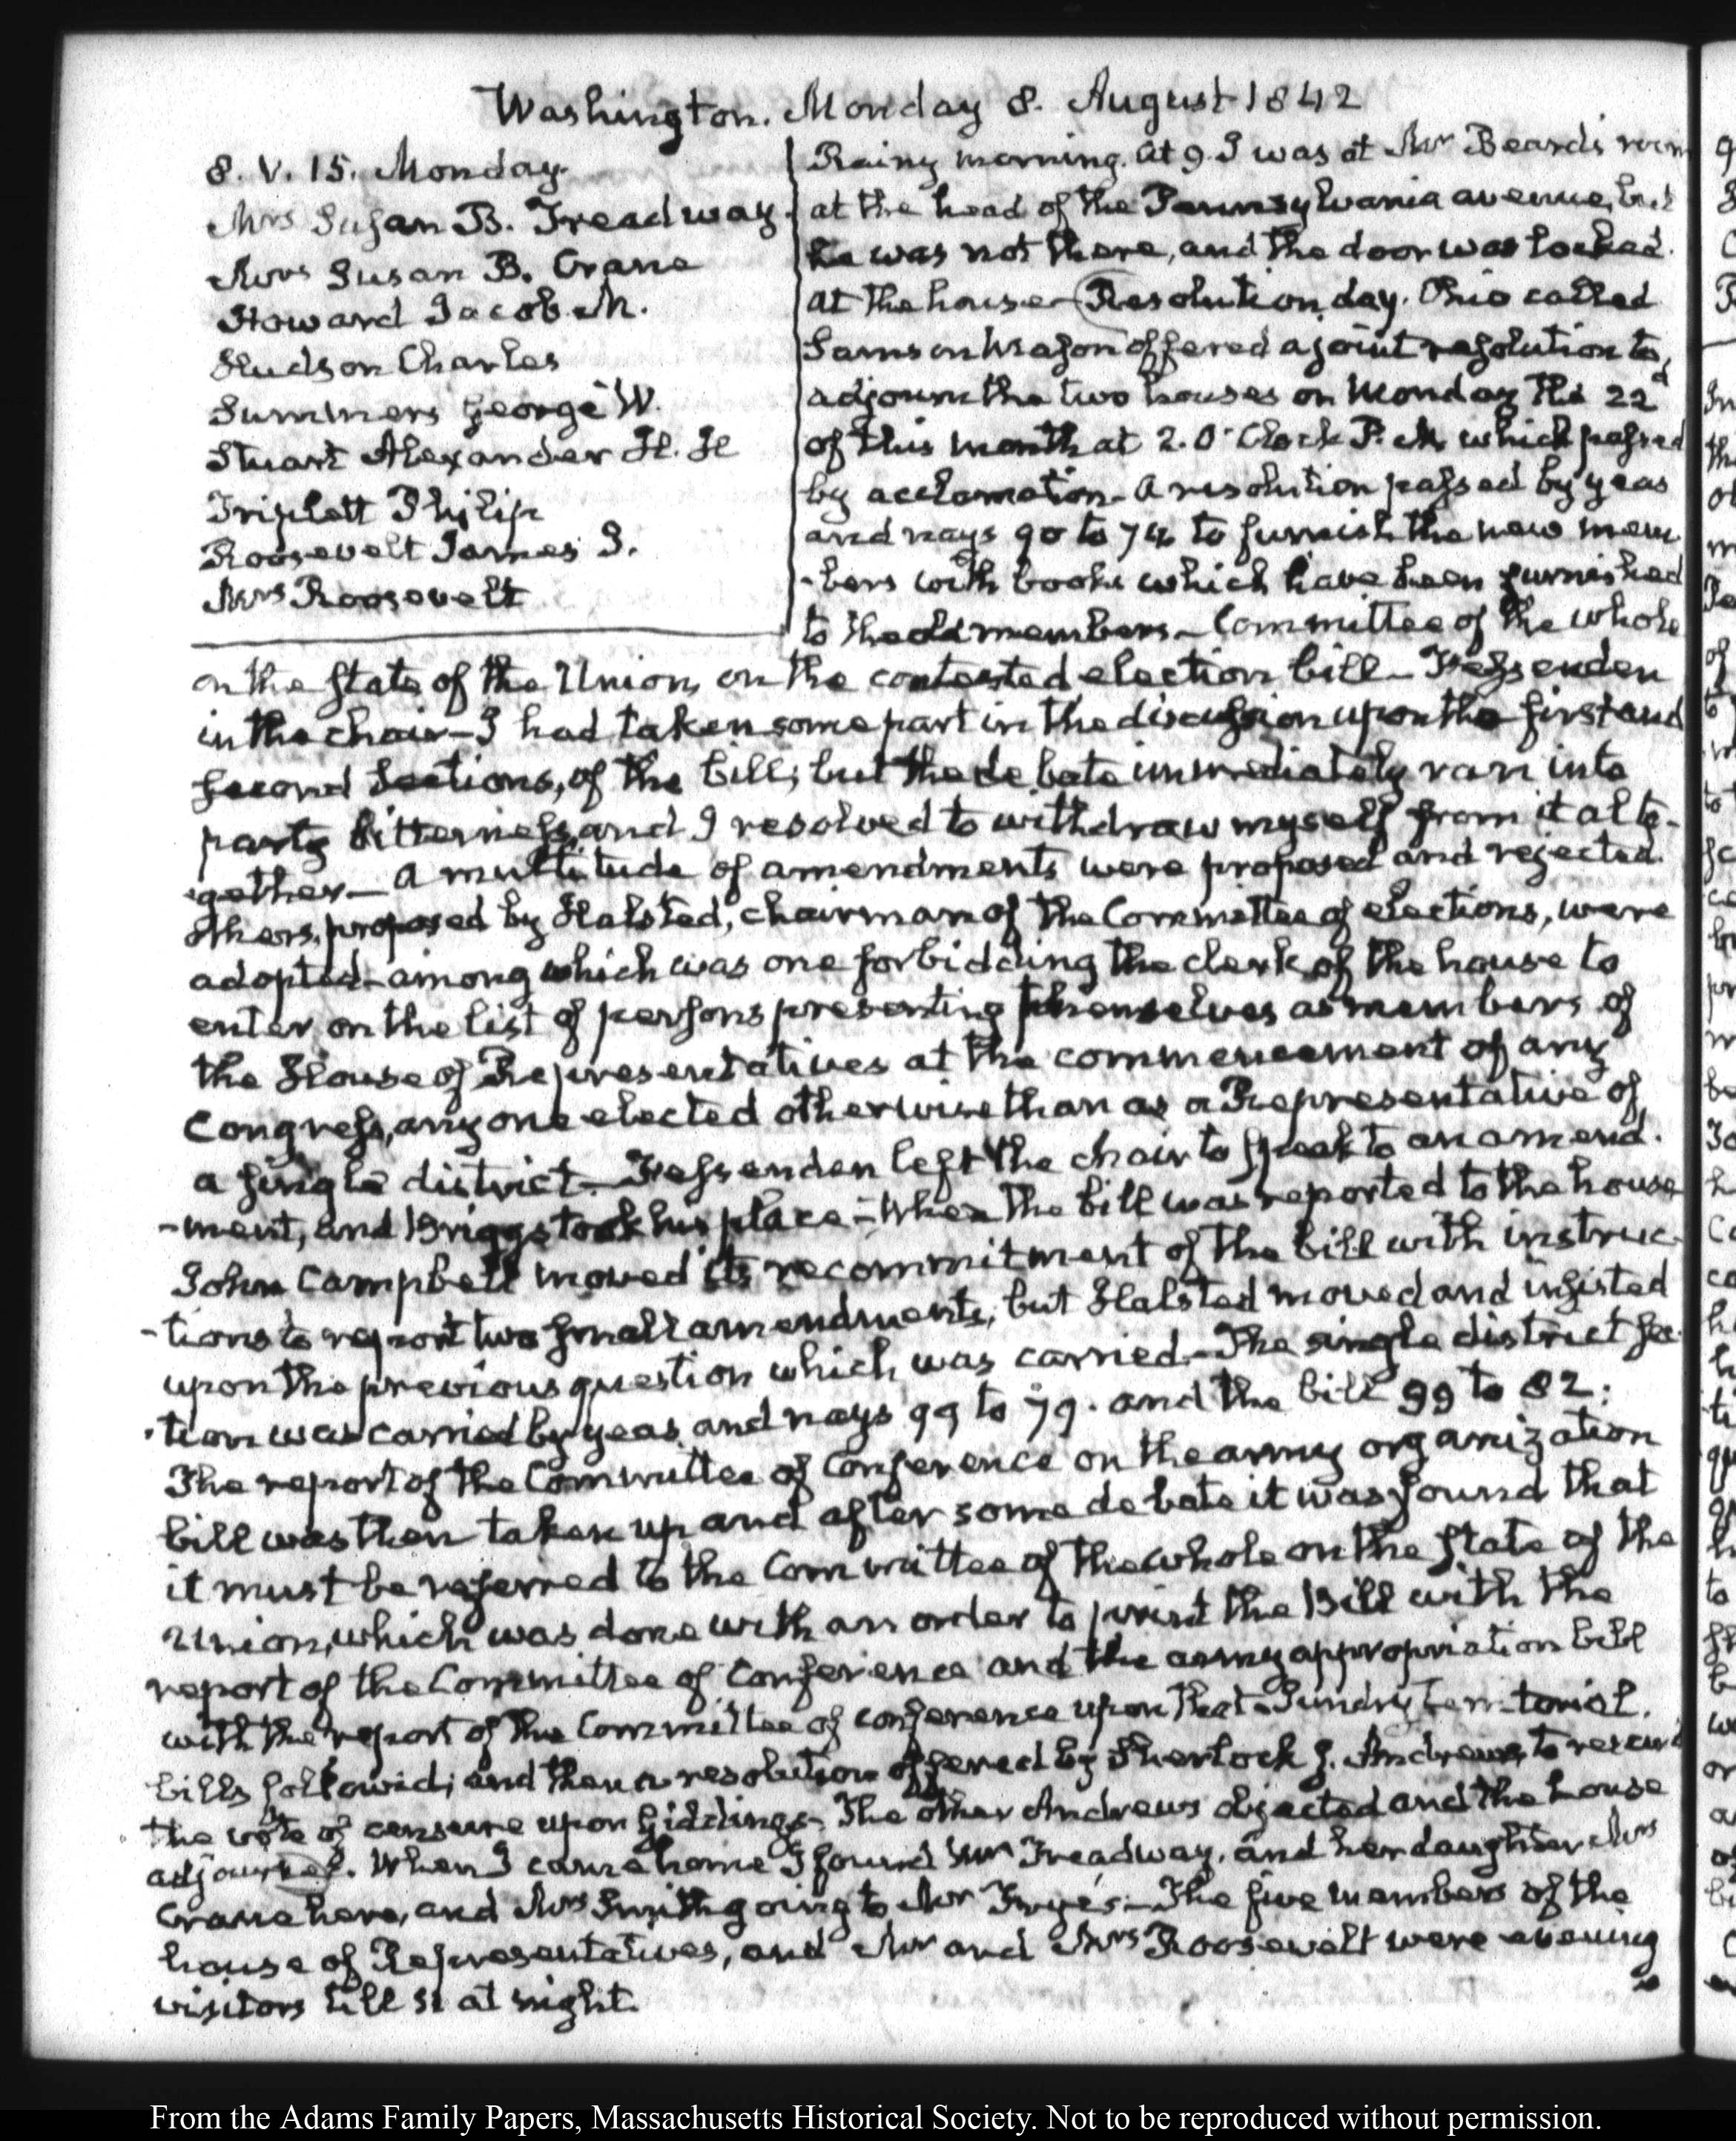 Washington. Monday 8. August 1842
8. V. 15. Monday.
Mrs Susan B. Treadway.
Mrs Susan B. Crane
Howard Jacob M.
Hudson Charles
Summers George W.
Stuart Alexander H. H
Triplett Philip
Roosevelt James I.
Mrs Roosevelt
Rainy morning. At 9. I was at Mr Beard's room
at the head of the Pennsylvania avenue, but
he was not there, and the door was locked.
At the house—Resolution day. Ohio called
Samson Mason offered a joint resolution to,
adjourn the two houses on Monday the 22d
of this month at 2. O'Clock P. M. which passed
by acclamation—A resolution passed by yeas
and nays 90 to 74 to furnish the new mem-
-bers with books which have been furnished
to the old members—Committee of the whole
on the state of the Union, on the contested election bill—Fessenden
in the chair—I had taken some part in the discussion upon the first and
second sections, of the bill; but the debate immediately ran into
party bitterness, and I resolved to withdraw myself from it alto-
-gether—A multitude of amendments were proposed and rejected.
Others, proposed by Halsted, chairman of the Committee of elections, were
adopted—among which was one forbidding the clerk of the house to
enter on the list of persons presenting themselves as members of
the House of Representatives at the commencement of any
Congress, any one elected otherwise than as a Representative of
a single district—Fessenden left the chair to speak to an amend-
-ment, and Briggs took his place—When the bill was reported to the house
John Campbell moved its recommitment of the bill with instruc-
-tions to report two small amendments; but Halsted moved and insisted
upon the previous question which was carried—The single district sec-
-tion was carried by yeas and nays 99 to 79. and the bill 99 to 82:
The report of the Committee of Conference on the army organization
bill was then taken up and after some debate it was found that
it must be referred to the Committee of the whole on the state of the
Union, which was done with an order to print the Bill with the
report of the Committee of Conference and the army appropriation bill
with the report of the Committee of conference upon that—Sundry territorial
bills followed; and then a resolution offered by Sherlock J. Andrews, to rescind
the vote of censure upon Giddings—The other Andrews objected and the house
adjourned. When I came home I found Mrs Treadway, and her daughter Mrs
Crane here, and Mrs Smith going to Mr Frye's—The five members of the
house of Representatives, and Mr and Mrs Roosevelt were evening
visitors till at night.
From the Adams Family Papers, Massachusetts Historical Society. Not to be reproduced without permission.